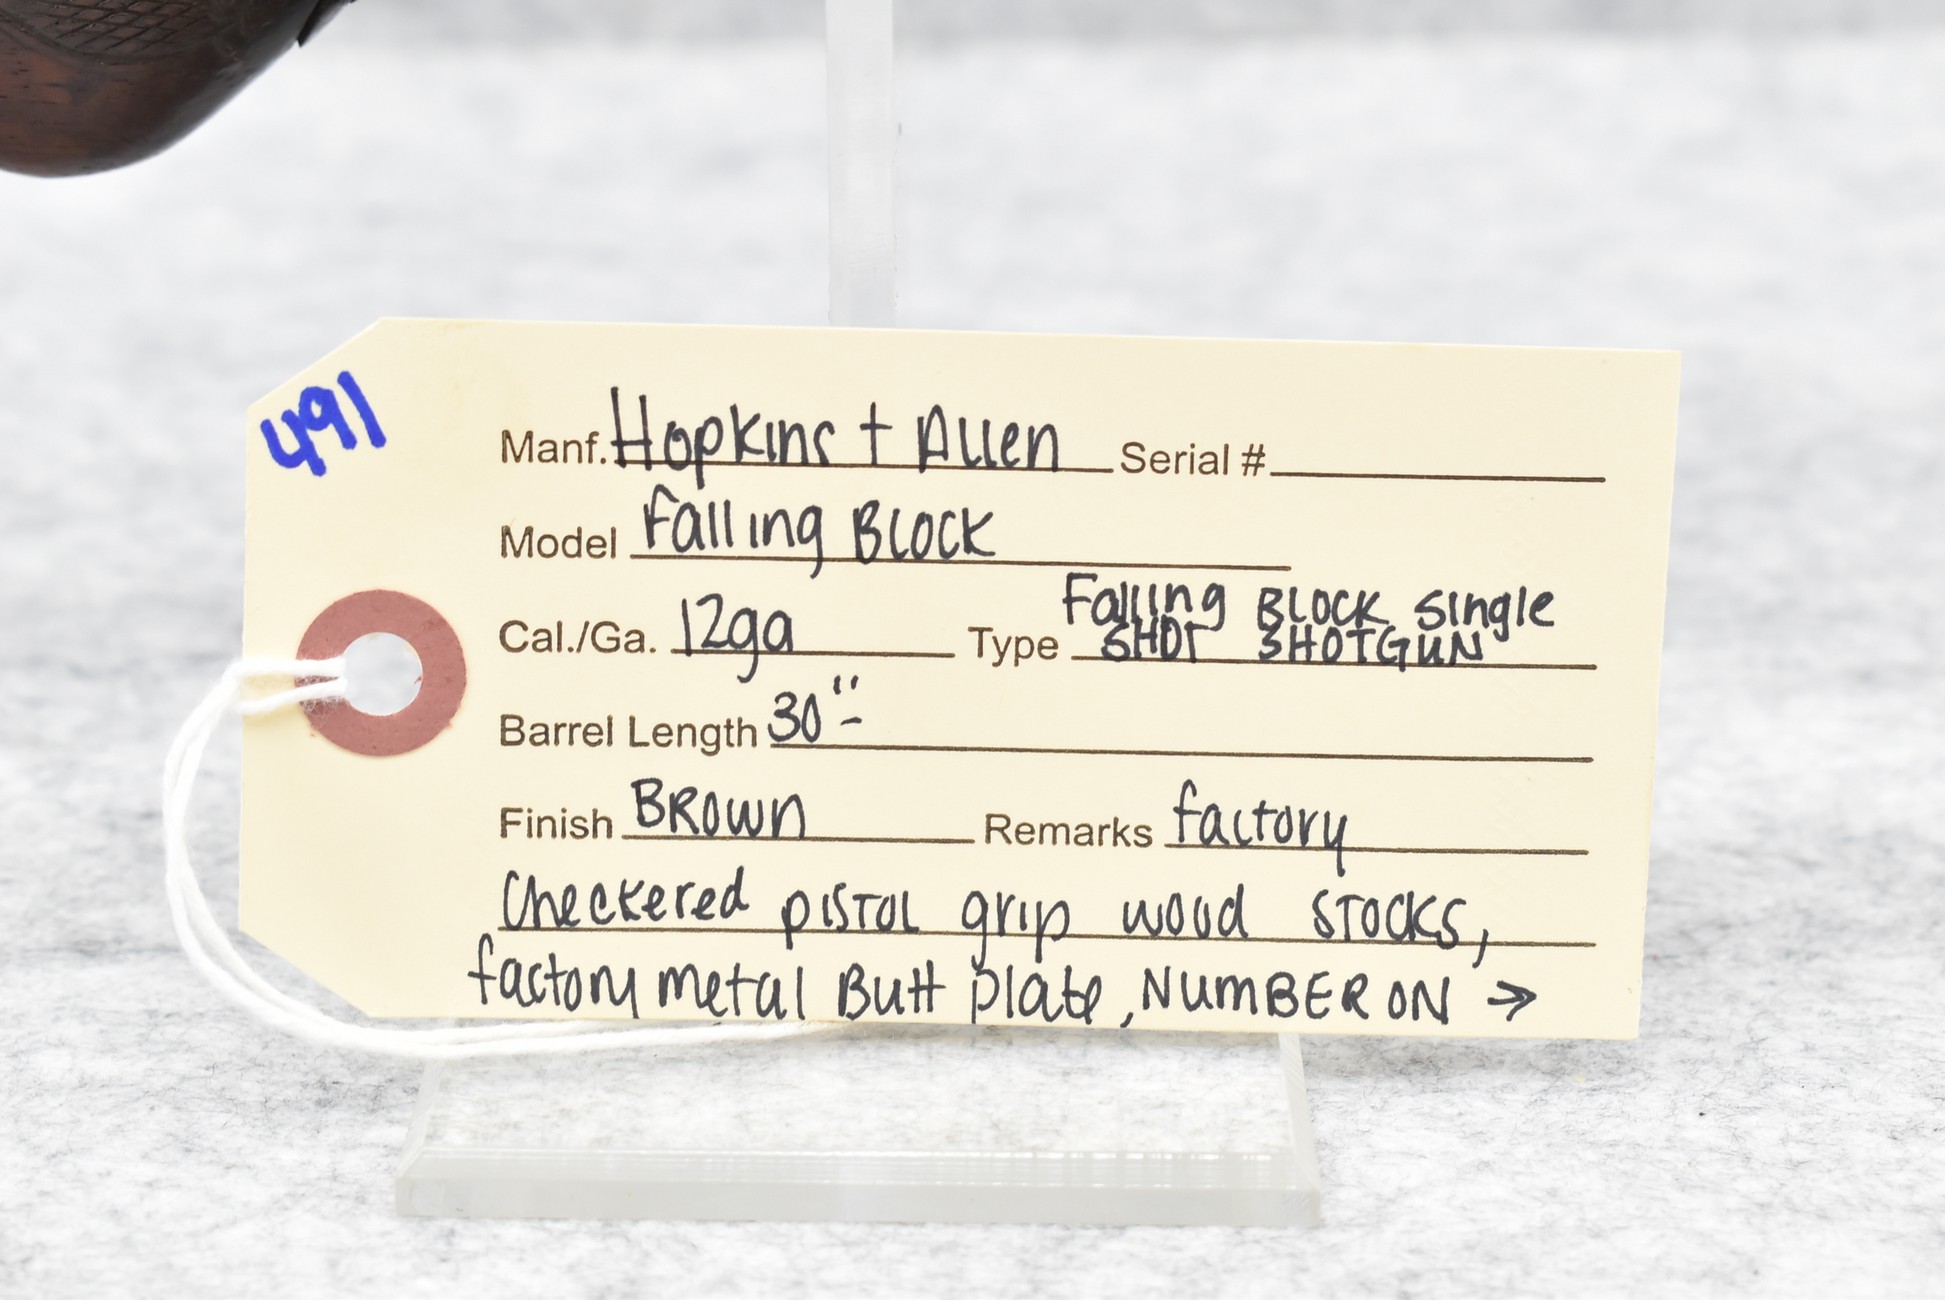 491
Manf. Hopkins + Allen Serial #
Model Falling Block
Cal./Ga. 12ga Type Falling Block Single
SHOT SHOTGUN
Barrel Length 30"-
Finish BROWN Remarks factory
Checkered pistol grip wood stocks,
factory metal Butt plate, NUMBER ON →